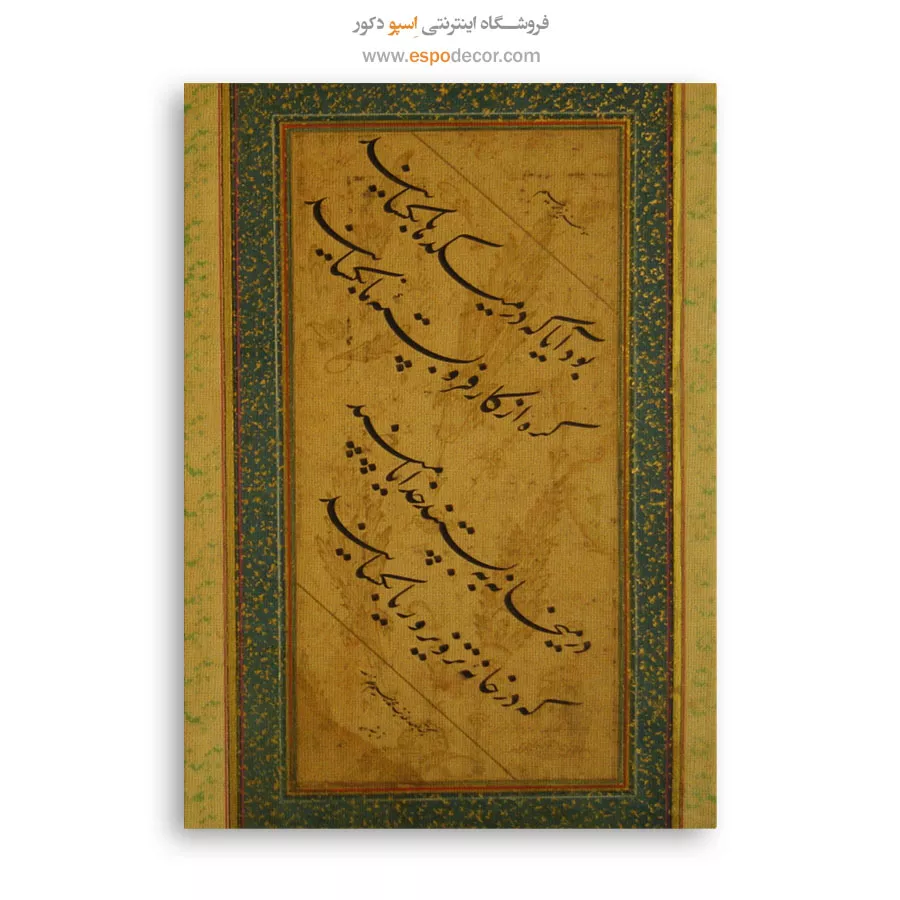 فروشگاه اینترنتی اِسپو دکور
www.espodecor.com
بود آیا که در میکدها بکشایند
کره از کار فروبسته ما بکشایند
در میخانه به بستند خدایا مپسند
که در خانه تزویر و ریا بکشایند